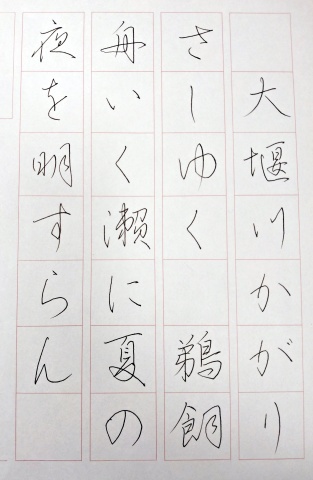 大堰川かがり
さしゆく 鵜飼
舟いく瀬に夏の
夜を明すらん